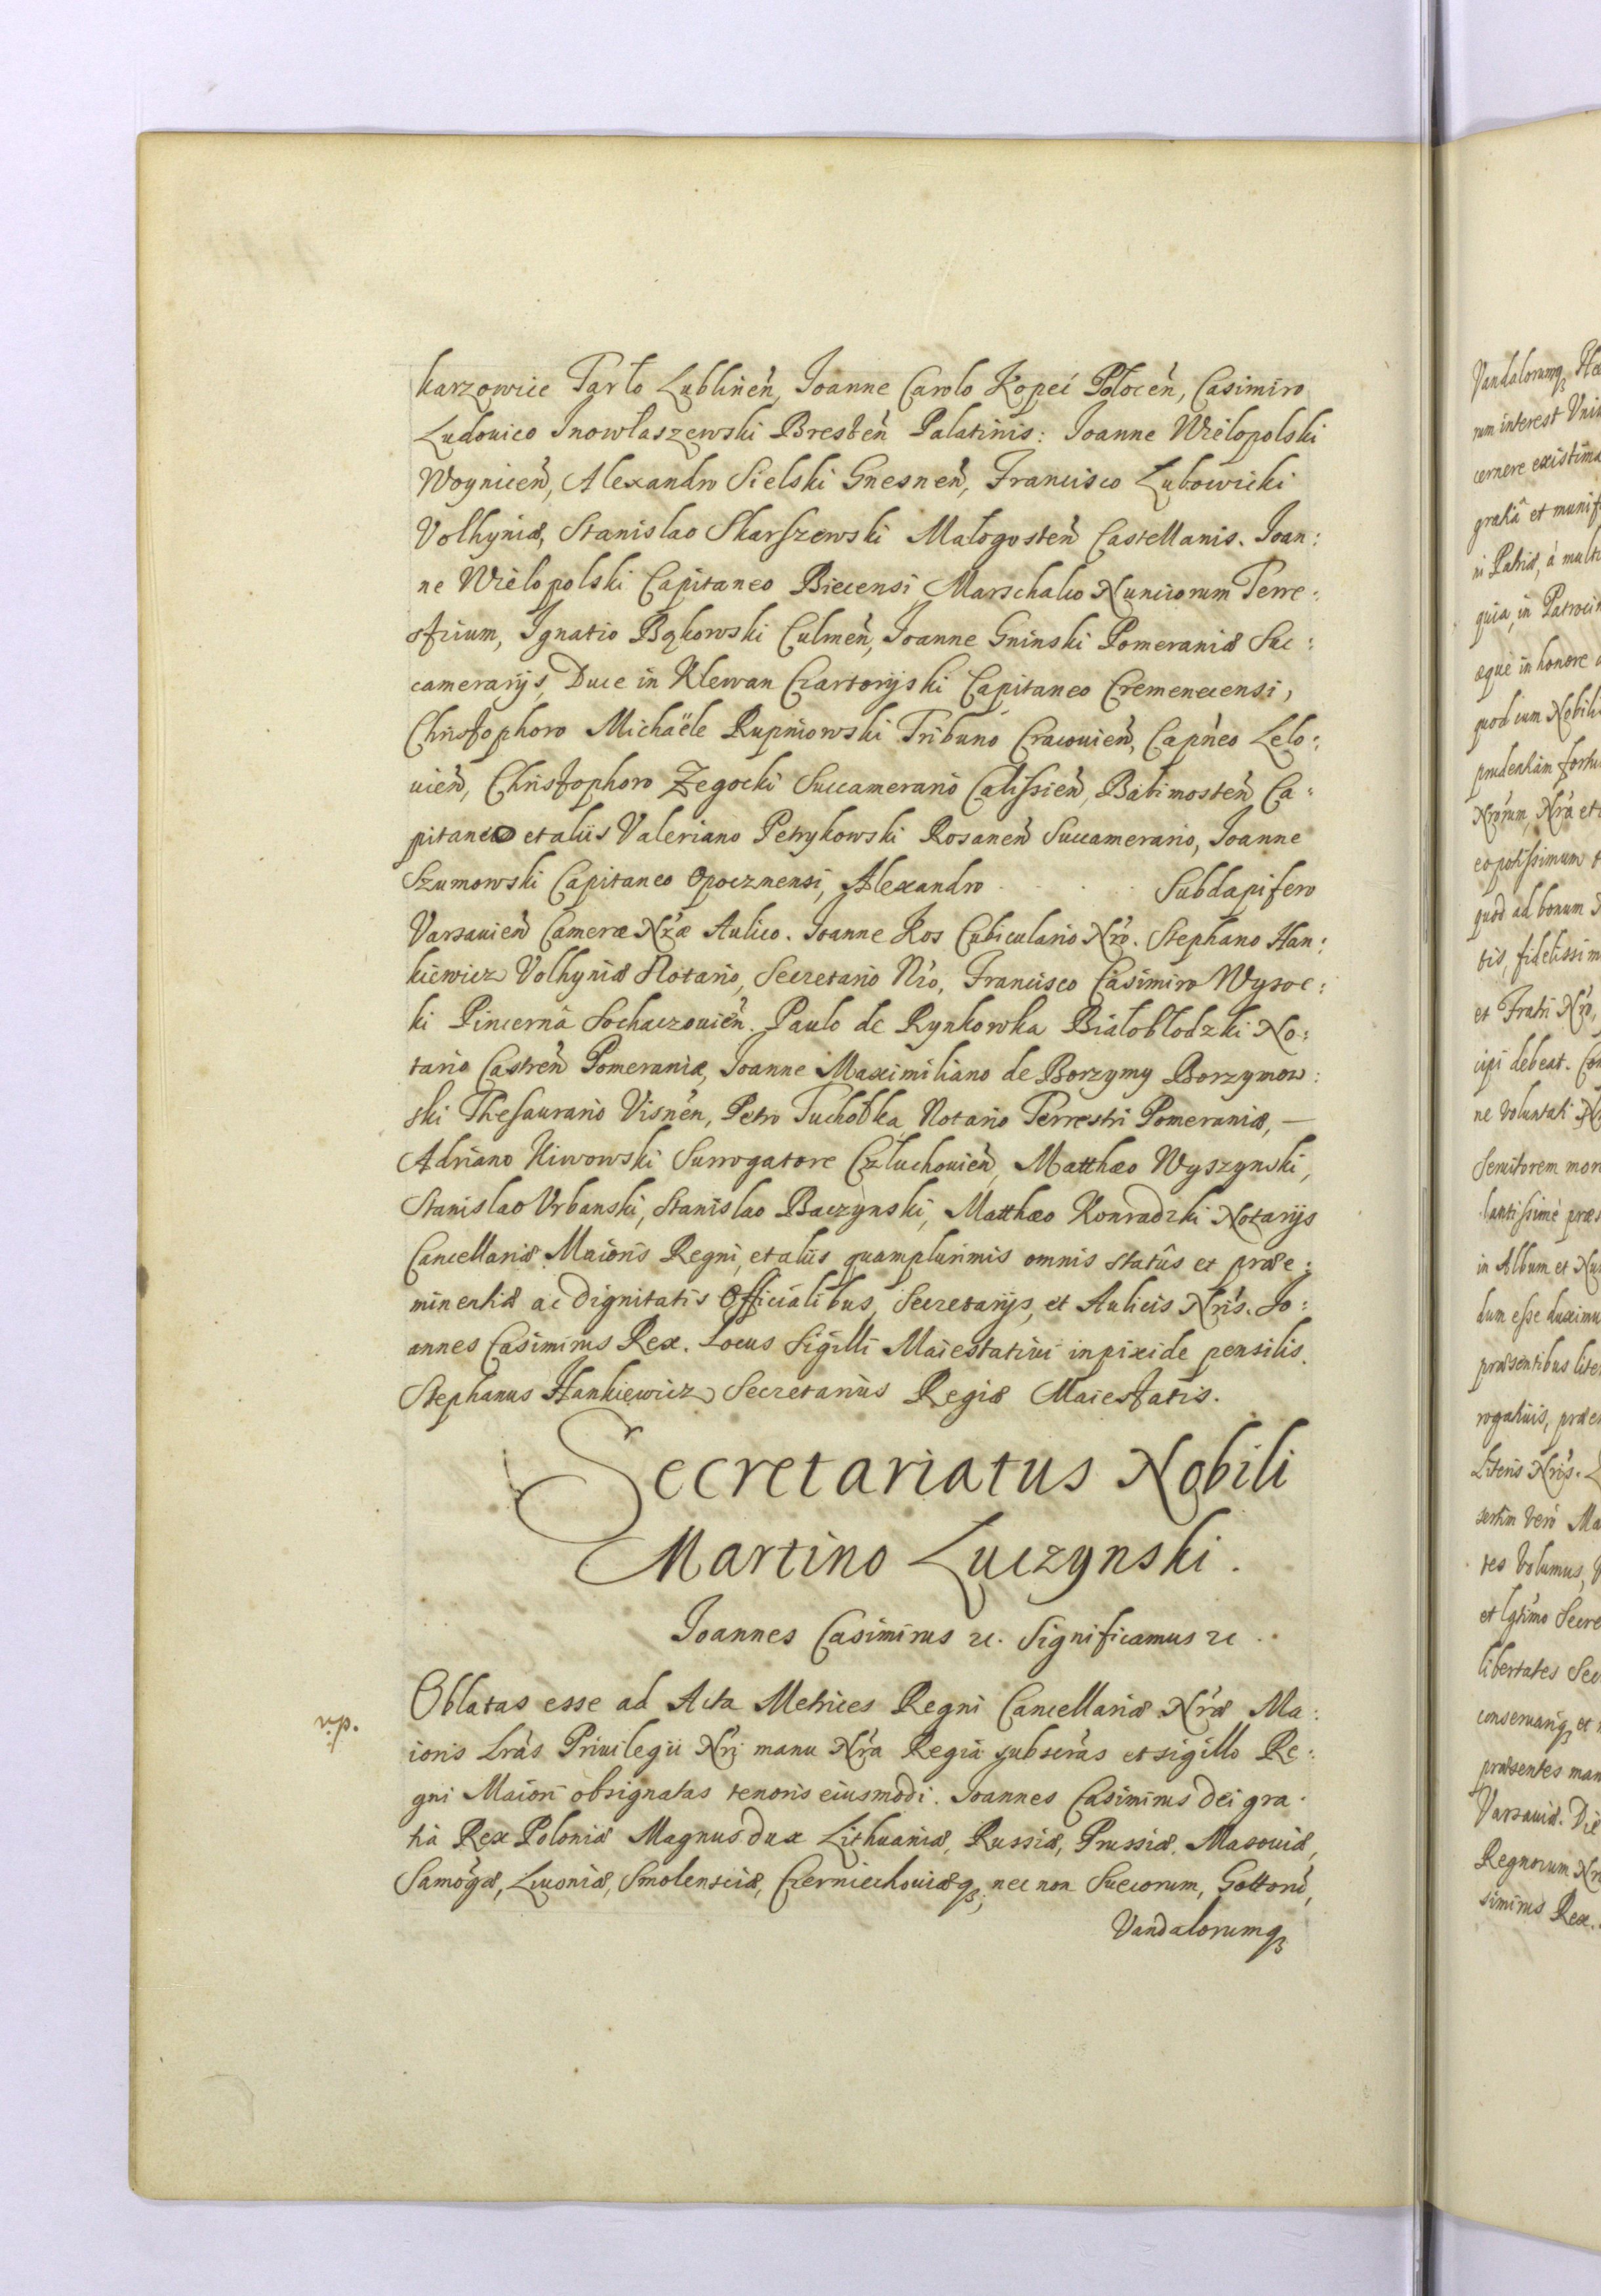 karzowice Tarło Lublinen̄, Joanne Carolo Kopeć Polocen̄, Casimiro
Ludouico Jnowłaszewski Bresten̄ Palatinis: Joanne Wielopolski
Woynicen̄, Alexandro Sielski Gnesnen̄, Francisco Lubowicki
Volhyniæ, Stanislao Skarszewski Małogosten̄ Castellanis. Joan:
ne Wielopolski Capitaneo Biecensi Marschalco Nunciorum Terre:
strium, Jgnatio Bąkowski Culmen̄, Joanne Gninski Pomeraniæ Suc:
camerarijs, Duce in Klewan Czartoryski Capitaneo Cremenecensi,
Christophoro Michaële Rupniowski Tribuno Cracouien̄, Capn̄eo Lelo:
uien̄, Christophoro Żegocki Succamerario Calissien̄, Babimosten̄ Ca:
pitaneo et aliis Valeriano Petrykowski Rosanen̄ Succamerario, Joanne
Szumowski Capitaneo Opocznensi, Alexandro . . . . Subdapifero
Varsauien̄ Cameræ Nr̄æ Aulico. Joanne Kos Cubiculario Nr̄o. Stephano Han:
kiewicz Volhyniæ Notario, Secretario Nr̄o, Francisco Casimiro Wysoc:
ki Pincerna Sochaczouien̄. Paulo de Rynkowka Białobłodzki No:
tario Castren̄ Pomeraniæ, Joanne Maximiliano de Borzymy Borzymow:
ski Thesaurario Visnen̄, Petro Tuchołka Notario Terrestri Pomeraniæ, —
Adriano Kiwowski Surrogatore Człuchouien̄, Matthæo Wyszynski,
Stanislao Vrbanski, Stanislao Baczynski, Matthæo Konradzki Notarijs
Cancellariæ Maioris Regni, et aliis quamplurimis omnis statûs et præe:
minentiæ ac dignitatis Officialibus, Secretarijs, et Aulicis Nr̄is. Jo:
annes Casimirus Rex. Locus Sigilli Maiestatiui in pixide pensilis.
Stephanus Hankiewicz Secretarius Regiæ Maiestatis.
Secretariatus Nobili
Martino Luczynski.
Joannes Casimirus rc. Significamus rc.
r.p.
Oblatas esse ad Acta Metrices Regni Cancellariæ Nr̄æ Ma:
ioris Lr̄as Priuilegii Nr̄i manu Nr̄a Regia subscr̄as et sigillo Re:
gni Maiori obsignatas tenoris eiusmodi. Joannes Casimirus dei gra:
tia Rex Poloniæ Magnus dux Lithuaniæ, Russiæ, Prussiæ, Masouiæ,
Samog̃æ, Liuoniæ, Smolensciæ, Czerniechouiæqȝ, nec non Suecorum, Gottorū,
Vandalorumqȝ
Vandalorumqȝ
rum interest
cernere
gratiâ et
ni Patriæ, à
quia, in
æquè in honore
quod cum
prudentiam
Nr̄orum, Nr̄a
eo potissimum
quod ad bonum
et Fratri Nr̄o,
cipi debeat.
ne voluntati
Seruitorem
in Album et
dum esse duximus
præsentibus
rogatiuis,
Literis Nr̄is.
vero
tes Volumus,
libertates
et
præsentes
Varsauiæ. Die
Regnorum
simirus Rex.